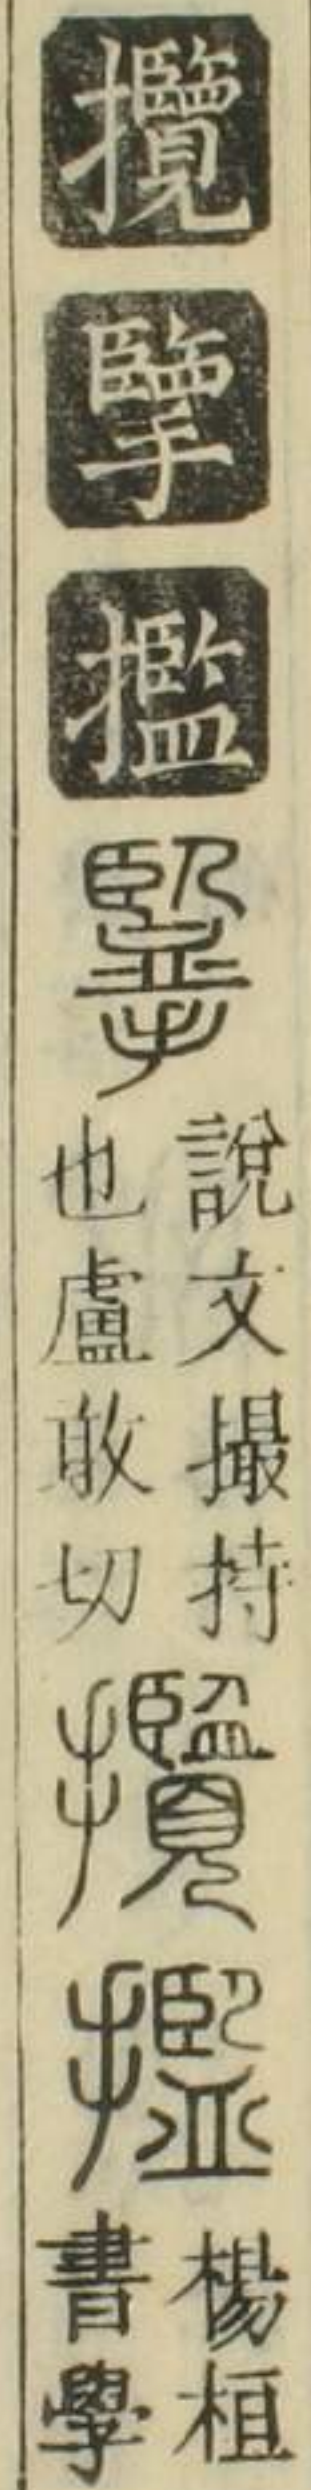 攬
擥
㩜
擥
說文撮持
也盧敢切
攬
㩜
楊桓
書學